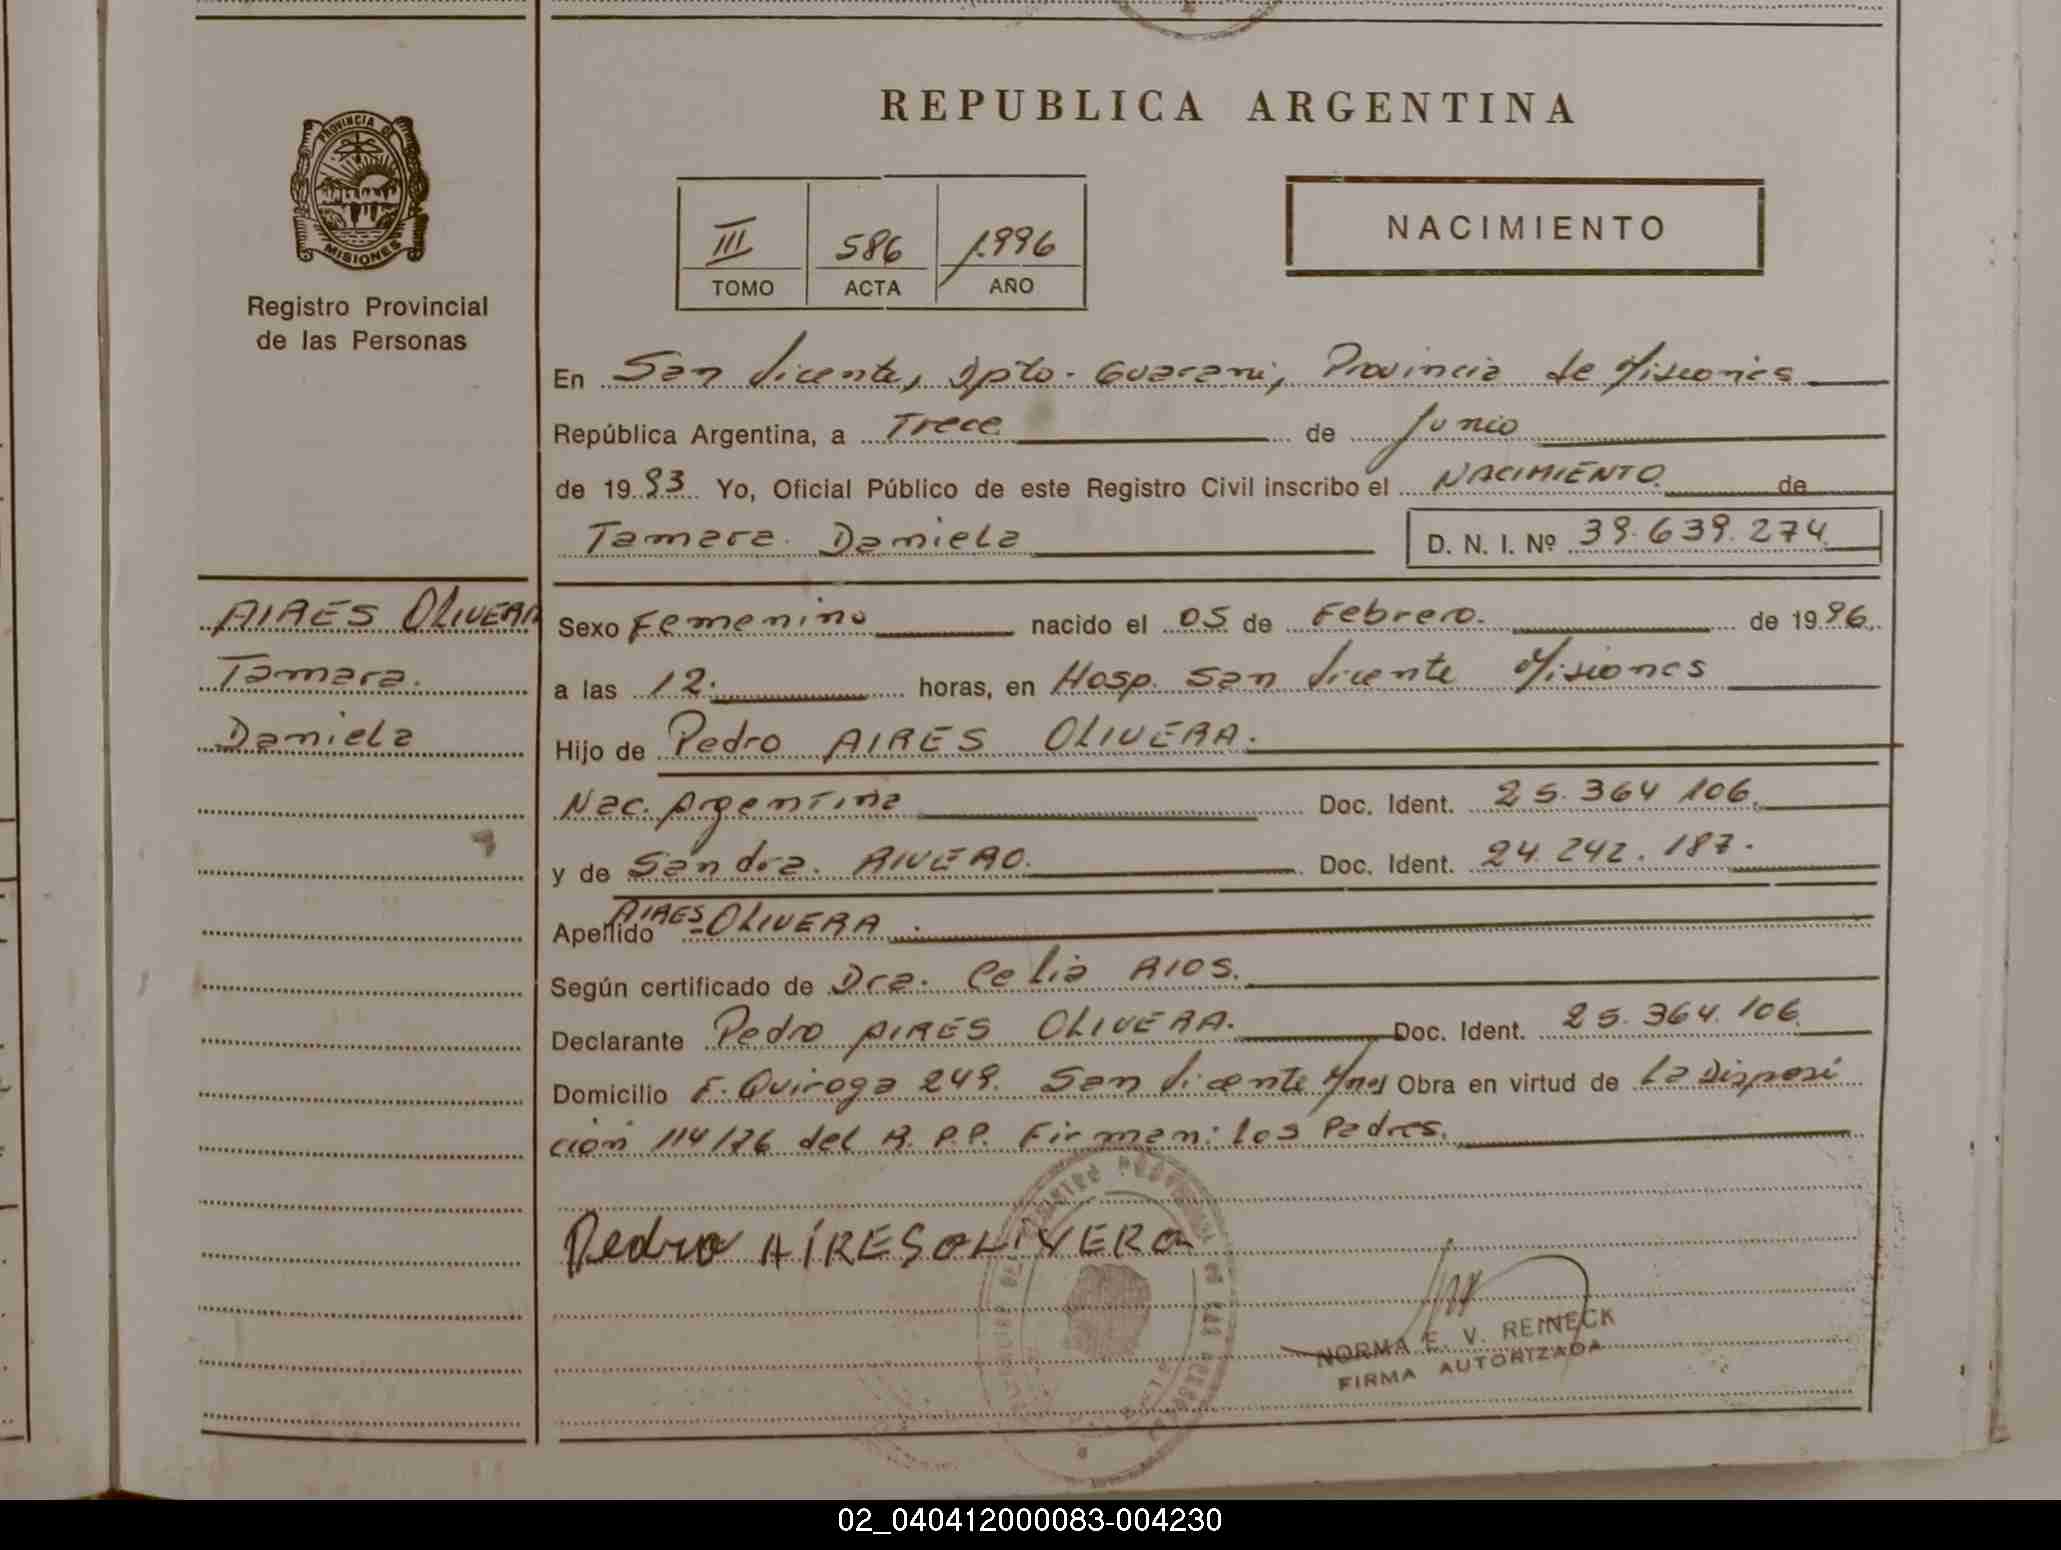 REPUBLICA ARGENTINA
PROVINCIA DE
MISIONES
Registro Provincial
de las Personas
III 586 1.996
TOMO ACTA AÑO
NACIMIENTO
En San Vicente, Dpto. Guarani, Provincia de Misiones
República Argentina, a Trece de Junio
de 1993 Yo, Oficial Público de este Registro Civil inscribo el NACIMIENTO. de
Tamara. Daniela
D. N. I. Nº 39.639.274
AIRES OLIVERA
Tamara.
Daniela
Sexo Femenino nacido el 05 de Febrero. de 1996.
a las 12. horas, en Hosp. San Vicente Misiones
Hijo de Pedro AIRES OLIVERA.
Nac. Argentina Doc. Ident. 25.364 106.
y de Sandra. RIVERO. Doc. Ident. 24.242.187.
Apellido AIRES OLIVERA.
Según certificado de Dra. Celia RIOS.
Declarante Pedro AIRES OLIVERA. Doc. Ident. 25.364.106
Domicilio F. Quiroga 249. San Vicente Mnes Obra en virtud de La Disposi
ción 114/76 del R.P.P. Firman: los Padres.
Pedro AIRES OLIVERA
NORMA E. V. REINECK
FIRMA AUTORIZADA
02_040412000083-004230